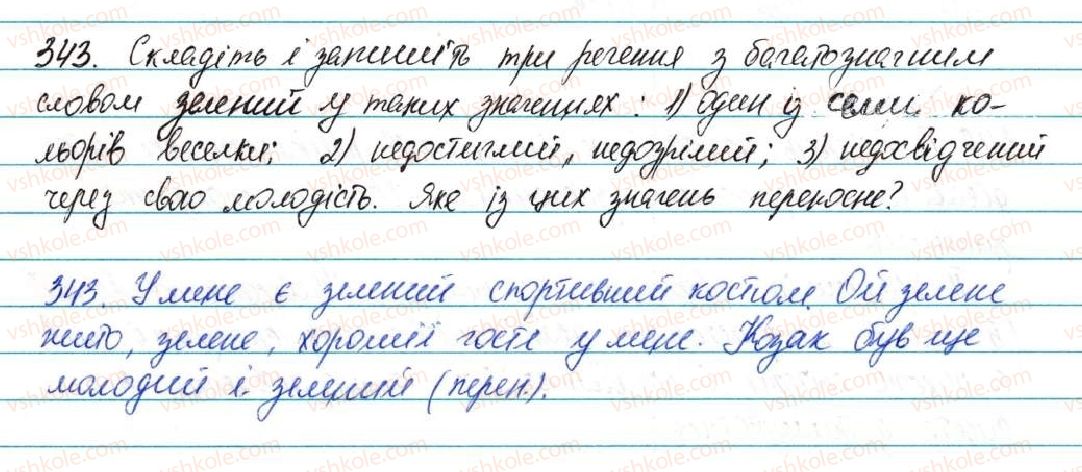 343. Складіть і запишіть три речення з багатозначним
словом зелений у таких значеннях: 1) один із семи ко-
льорів веселки; 2) недостиглий, недозрілий; 3) недосвідчений
через свою молодість. Яке із цих значень переносне?
343. У мене є зелений спортивний костюм. Ой зелене
жито, зелене, хорошії гості у мене. Козак був ще
молодий і зелений (перен.).